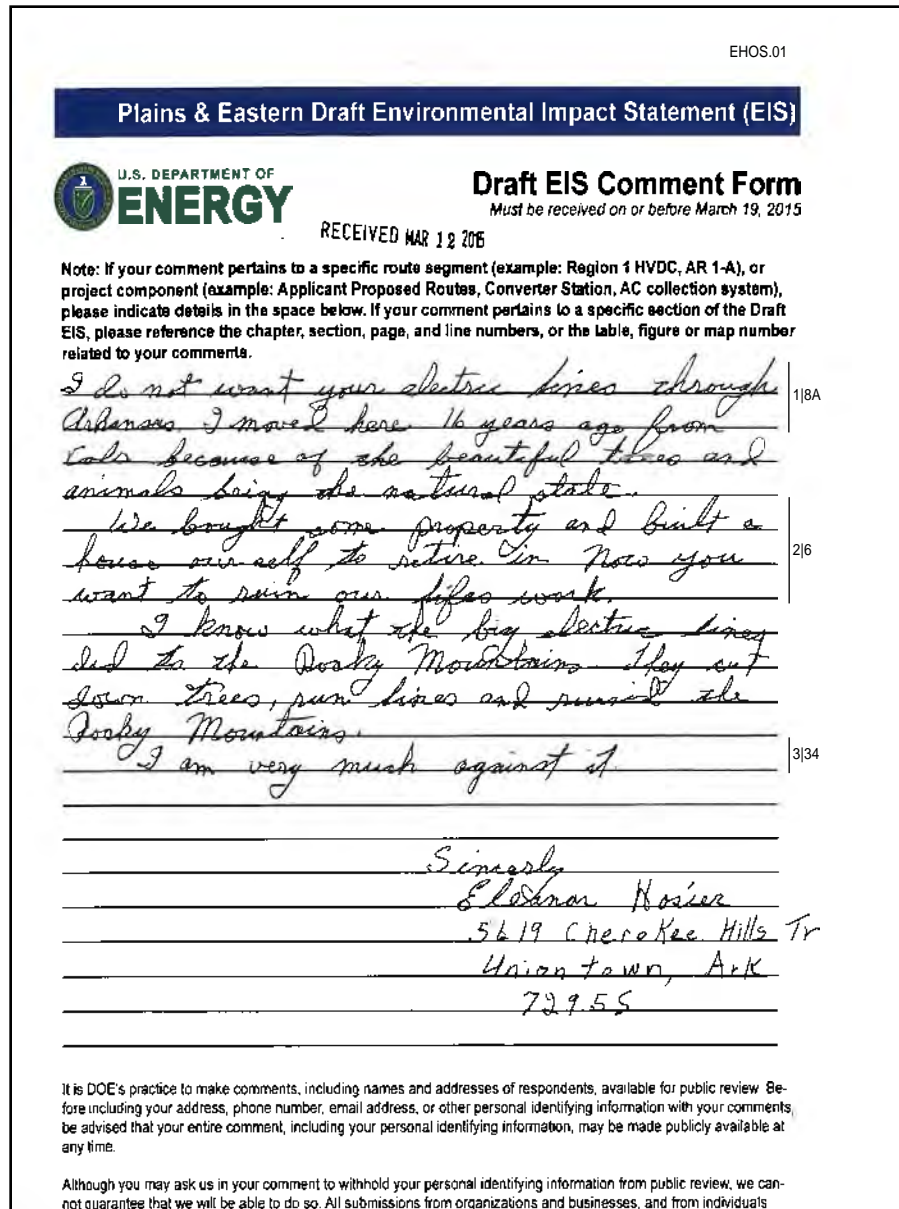 EHOS.01
Plains & Eastern Draft Environmental Impact Statement (EIS)
U.S. DEPARTMENT OF
ENERGY
Draft EIS Comment Form
Must be received on or before March 19, 2015
RECEIVED MAR 12 2015
Note: If your comment pertains to a specific route segment (example: Region 1 HVDC, AR 1-A), or
project component (example: Applicant Proposed Routes, Converter Station, AC collection system),
please indicate details in the space below. If your comment pertains to a specific section of the Draft
EIS, please reference the chapter, section, page, and line numbers, or the table, figure or map number
related to your comments.
I do not want your electric lines through
1|8A
Arkansas. I moved here 16 years ago from
Colo because of the beautiful trees and
animals being the natural state.
We bought some property and built a
house our self to retire in Now you
2|6
want to ruin our lifes work.
I know what the big electric lines
did to the Rocky Mountains. They cut
down trees, run lines and ruined the
Rocky Mountains.
I am very much against it
3|34
Sincerly
Eleanor Hosier
5619 Cherokee Hills Tr
Uniontown, Ark
72955
It is DOE's practice to make comments, including names and addresses of respondents, available for public review. Be-
fore including your address, phone number, email address, or other personal identifying information with your comments,
be advised that your entire comment, including your personal identifying information, may be made publicly available at
any time.
Although you may ask us in your comment to withhold your personal identifying information from public review, we can-
not guarantee that we will be able to do so. All submissions from organizations and businesses, and from individuals